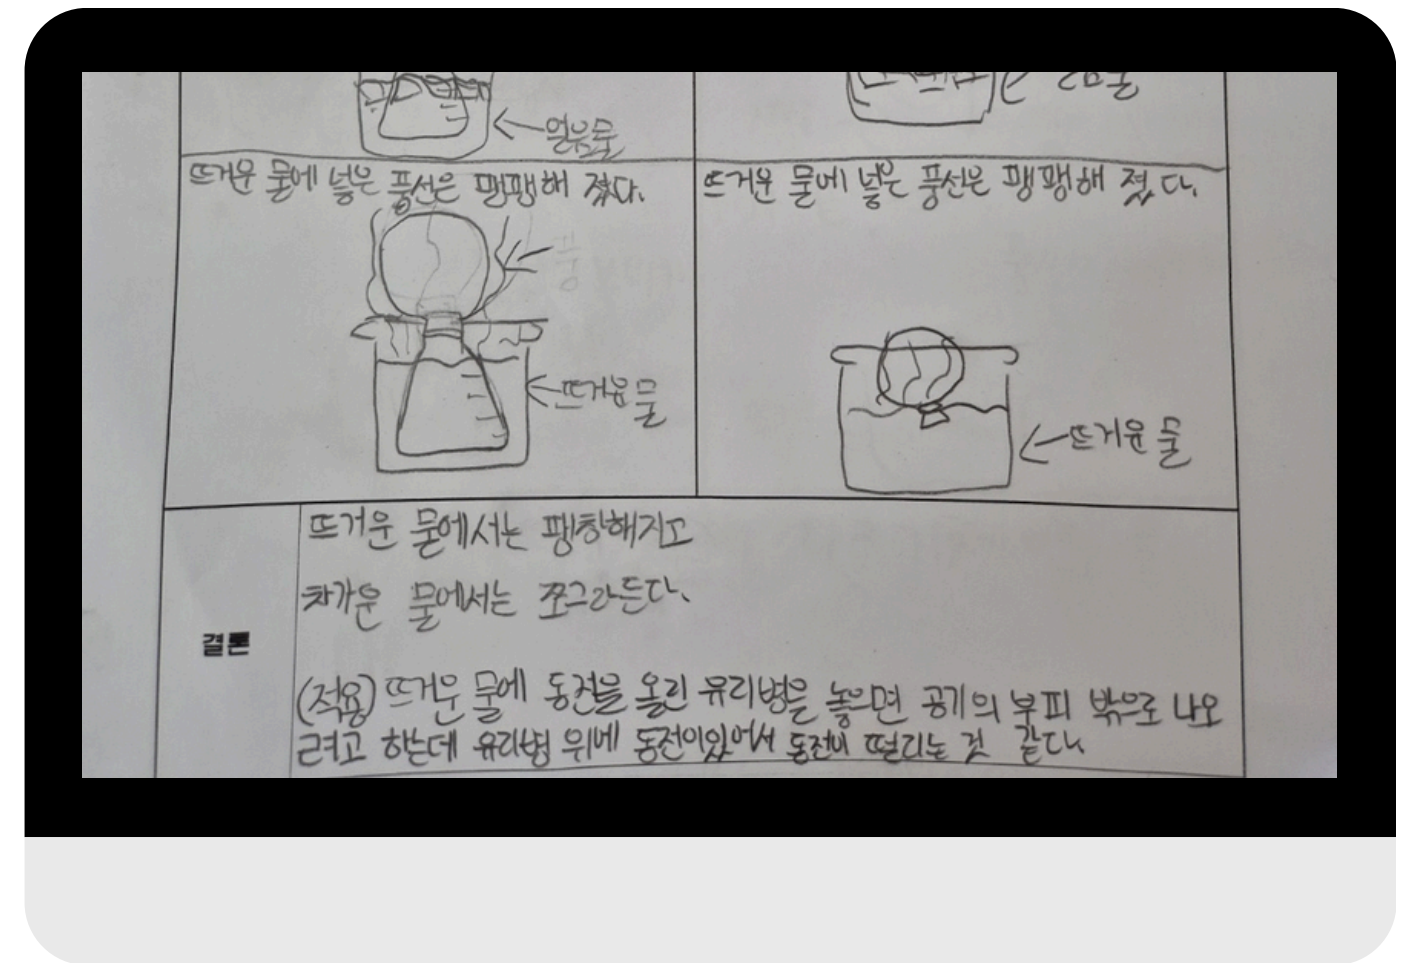 얼음물
뜨거운 물에 넣은 풍선은 팽팽해 졌다.
뜨거운 물에 넣은 풍선은 팽팽해 졌다.
풍
뜨거운 물
뜨거운 물
결론
뜨거운 물에서는 팽창해지고
차가운 물에서는 쪼그라든다.
(적용) 뜨거운 물에 동전을 올린 유리병을 놓으면 공기의 부피 밖으로 나오
려고 하는데 유리병 위에 동전이있어서 동전이 떨리는 것 같다.